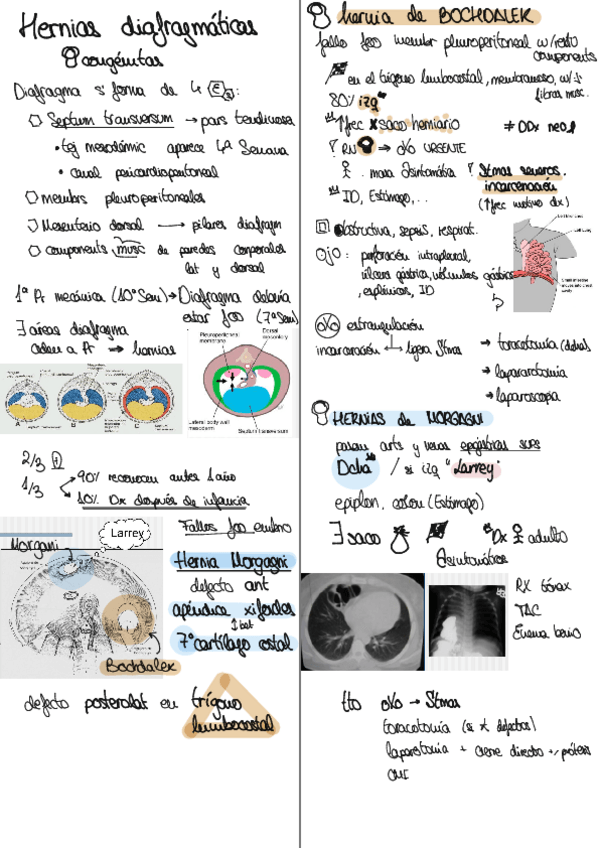 Hernias diafragmáticas
congénitas
Diafragma s' forma de 4
Septum transversum → pars tendinosa
• tej mesodérmico aparece 4ª Semana
• canal pericardioperitoneal
membrs pleuroperitoneales
Mesenterio dorsal → pilares diafragm
components musc de paredes corporales
lat y dorsal
1ª A mecánica (10ª Sem) → Diafragma debería
estar (7ª Sem)
∃ áreas diafragma
ceden a A → hernias
Pleuroperitoneal
membrane
Dorsal
mesentery
A
B
C
Lateral body wall
mesoderm
Septum transversum
2/3
1/3
90% reconocen antes 1 año
10% Dx después de infancia
Fallos embrio
Morgani
Larrey
Bochdalek
Hernia Morgagni
defecto ant
apéndice xifoides
7º cartílago costal
defecto posterolat en trígono
lumbocostal
hernia de BOCHDALEK
fallo membr pleuroperitoneal w/resto
components
en el trígono lumbocostal, membranoso, w/↓
fibras musc.
80% izq
↑frec x saco herniario
≠ DDx neo
RN → URGENTE
masa Asintomática
Stmas severos.
incarceración
(↑frec motivo dx)
ID, Estómago, ..
obstructiva, sepsis, respirat.
Ojo: perforación intrapleural,
úlcera gástrica, vólvulos gástrico
, esplénicos, ID
Small intestine
moves into chest
cavity
estrangulación
incarceración
ligera Stmas
→ toracotomía (dcha)
→ laparotomía
→ laparoscopia
HERNIAS de MORGAGNI
pasan arts y venas epigástricas sups
Dcha / si izq "Larrey"
epiplon, colon (Estómago)
∃ saco
Dx adulto
Asintomático
RX tórax
TAC
Enema bario
tto → Stmas
toracotomía (si x defectos)
laparotomía + cierre directo +/- prótesis
CMI